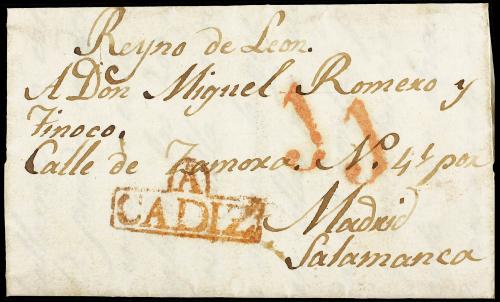 Reyno de Leon.
A Don Miguel Romero y
Tinoco.
Calle de Zamora. Nº 4t por
Madrid
Salamanca
A
CADIZ